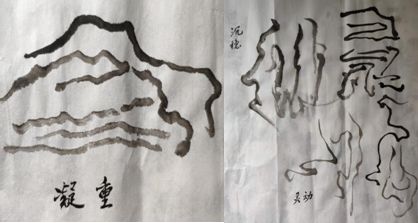 凝重
沉稳
灵动